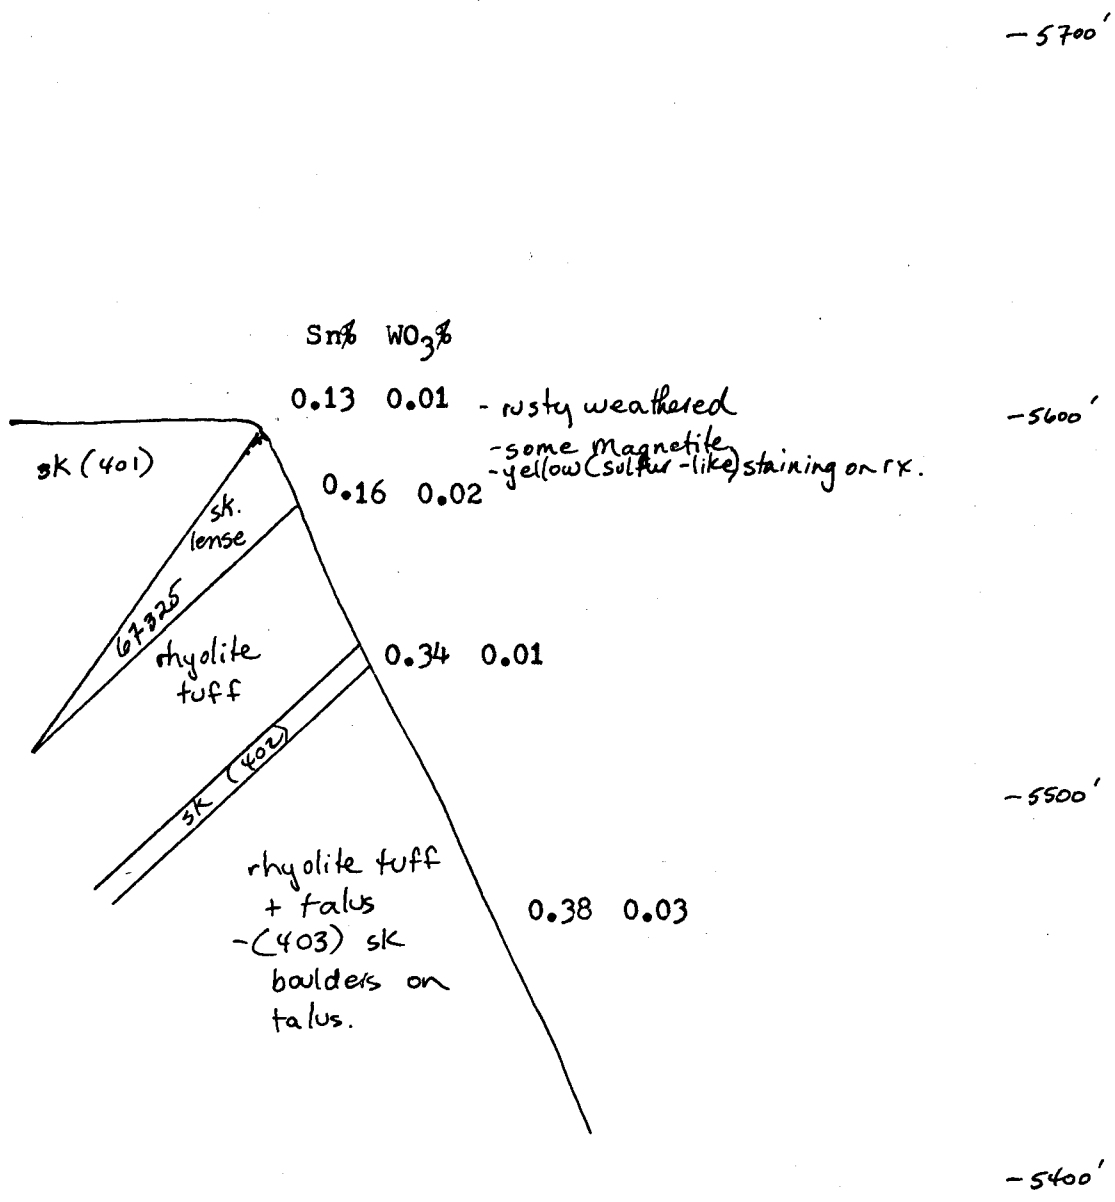 - 5700'
Sn% WO3%
0.13 0.01 - rusty weathered
- 5600'
- some Magnetite
- yellow (sulfur-like) staining on rx.
sk (401)
0.16 0.02
sk.
lense
67325
rhyolite
tuff
0.34 0.01
sk (402)
- 5500'
rhyolite tuff
+ talus
- (403) sk
boulders on
talus.
0.38 0.03
- 5400'